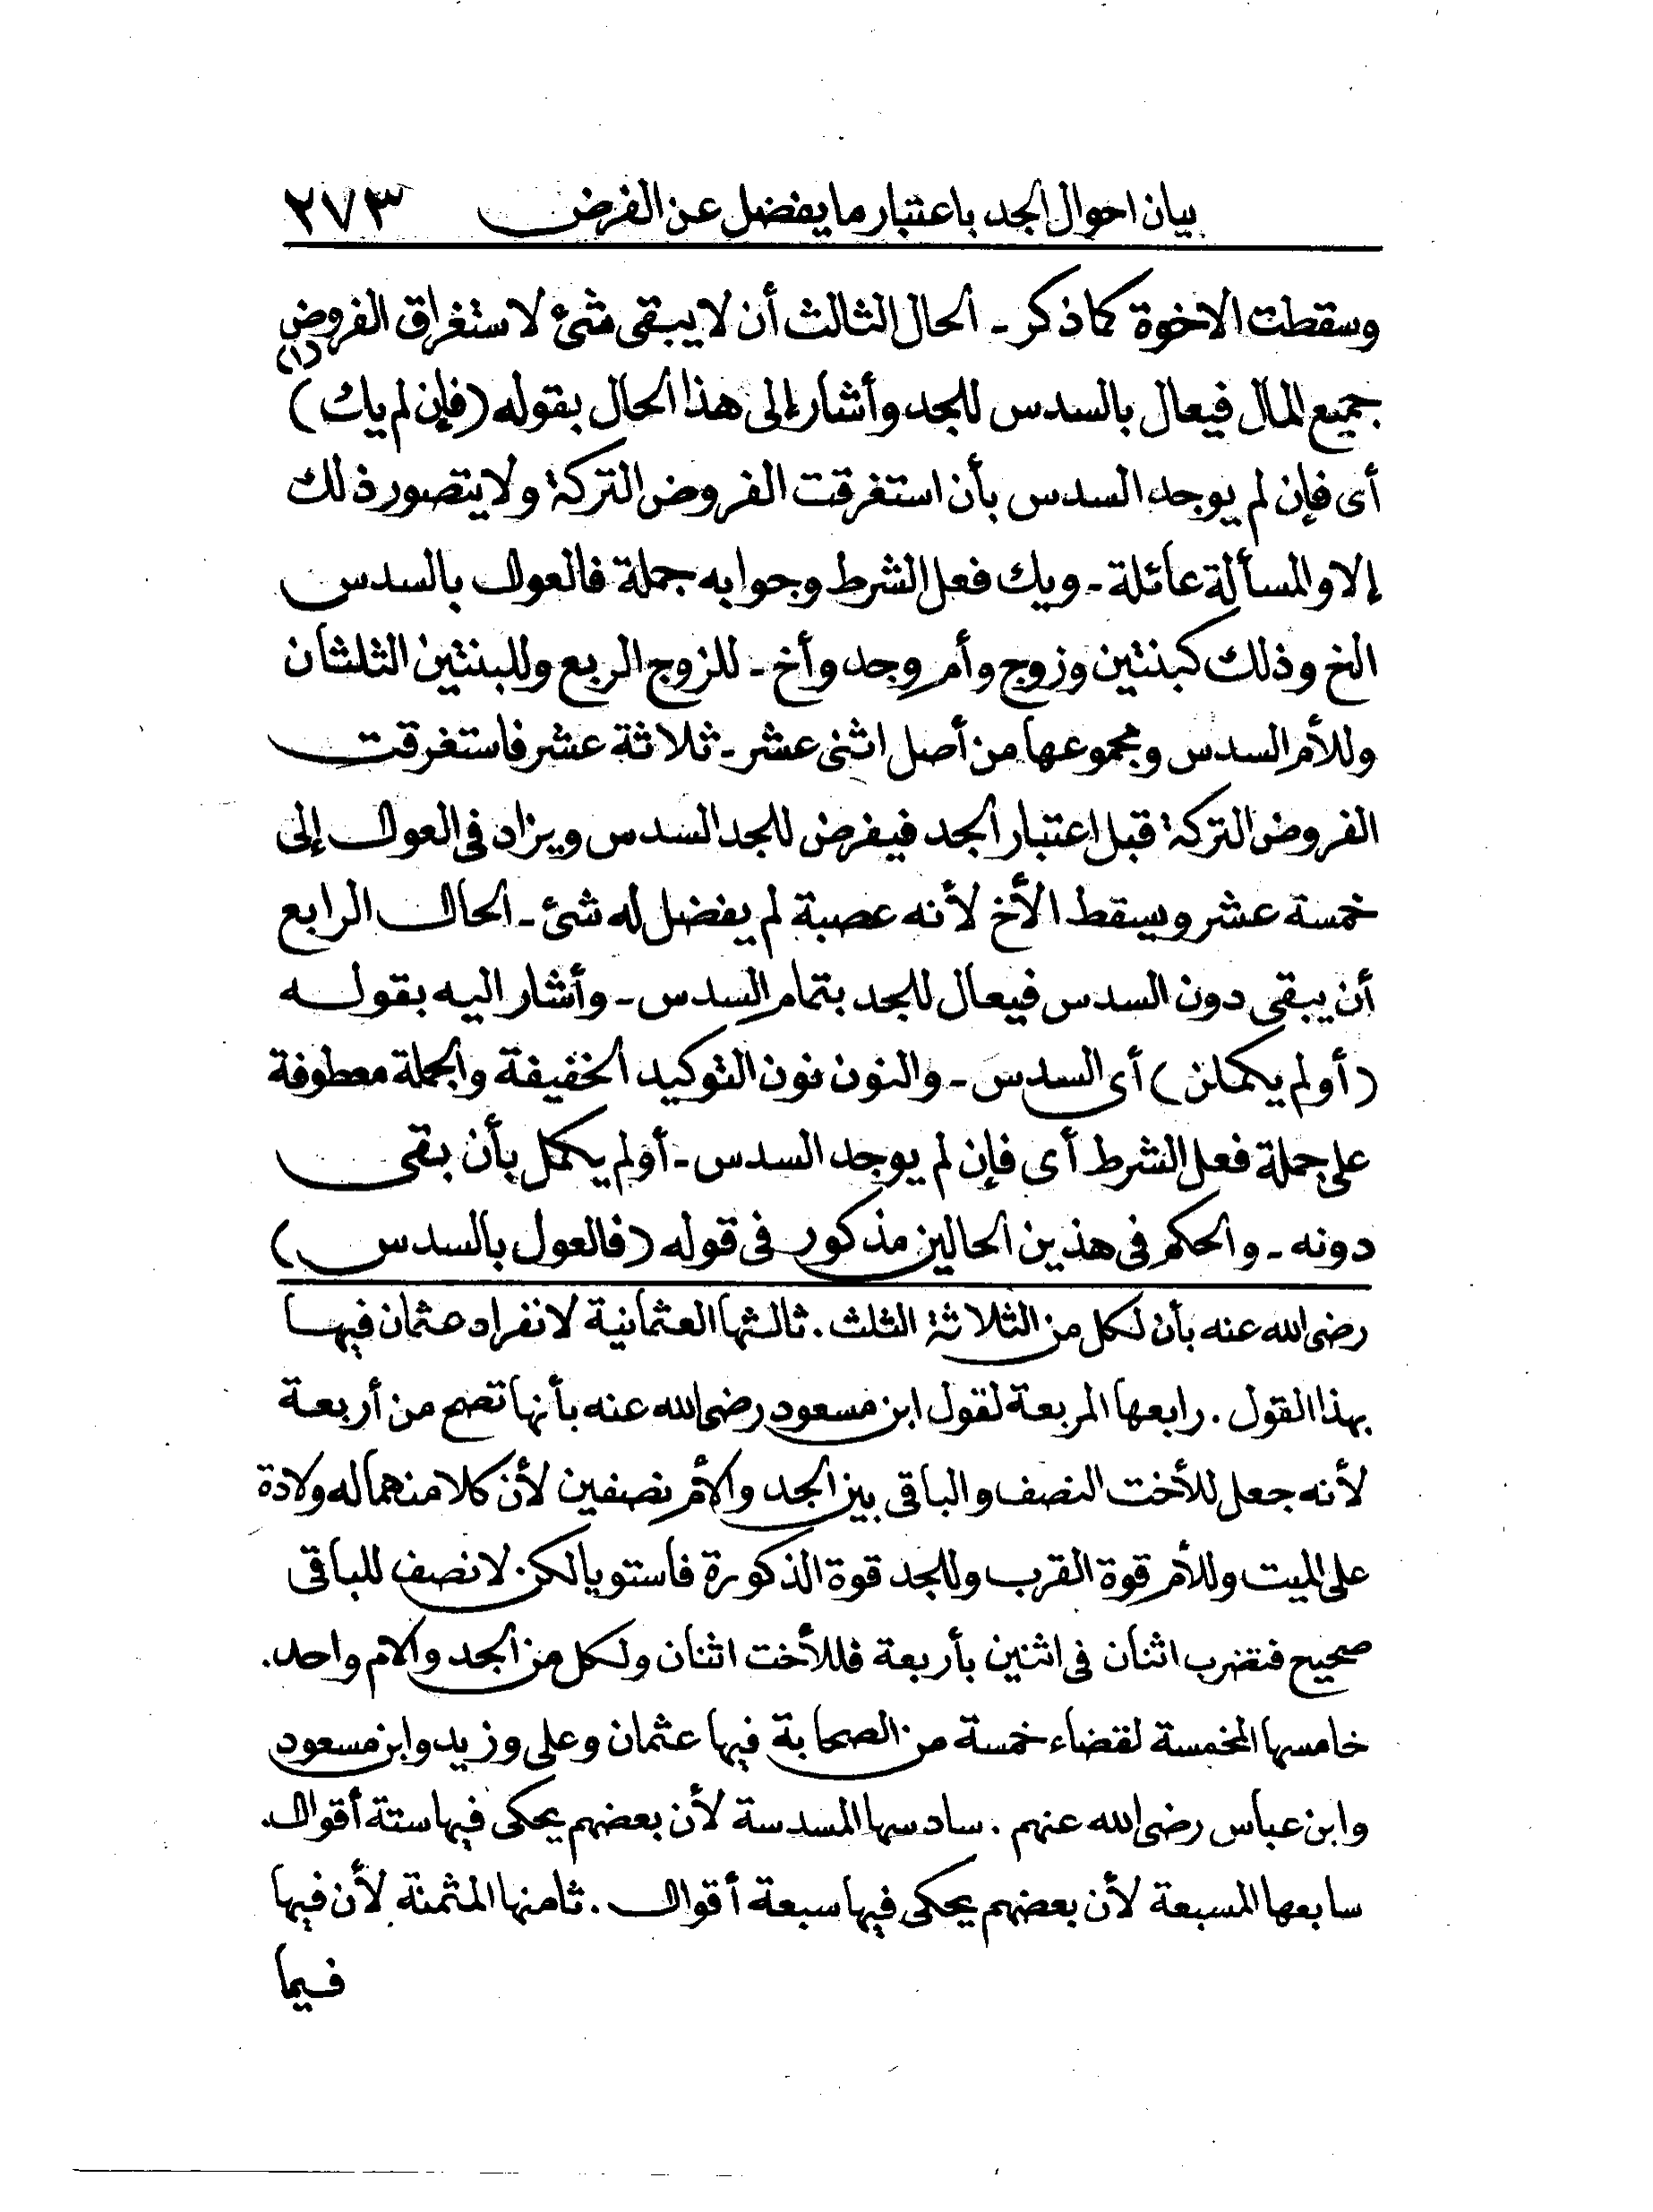 بيان احوال الجد باعتبار ما يفضل عن الفرض ٢٧٣
وسقطت الاخوة كما ذكر - الحال الثالث أن لا يبقى شئ لاستغراق الفروض
(١)
جميع المال فيعال بالسدس للجد وأشار إلى هذا الحال بقوله (فإن لم يك)
أى فإن لم يوجد السدس بأن استغرقت الفروض التركة ولا يتصور ذلك
إلا والمسألة عائلة - ويك فعل الشرط وجوابه جملة فالعول بالسدس
الخ وذلك كبنتين وزوج وأم وجد وأخ - للزوج الربع وللبنتين الثلثان
وللأم السدس ومجموعها من أصل اثنى عشر - ثلاثة عشر فاستغرقت
الفروض التركة قبل اعتبار الجد فيفرض للجد السدس ويزاد فى العول إلى
خمسة عشر ويسقط الأخ لأنه عصبة لم يفضل له شئ - الحال الرابع
أن يبقى دون السدس فيعال للجد بتمام السدس - وأشار اليه بقوله
(أو لم يكملن) أى السدس - والنون نون التوكيد الخفيفة والجملة معطوفة
على جملة فعل الشرط أى فإن لم يوجد السدس - أو لم يكمل بأن بقى
دونه - والحكم فى هذين الحالين مذكور فى قوله (فالعول بالسدس)
رضى الله عنه بأن لكل من الثلاثة الثلث . ثالثها العثمانية لانفراد عثمان فيها
بهذا القول . رابعها المربعة لقول ابن مسعود رضى الله عنه بأنها تصح من أربعة
لأنه جعل للأخت النصف والباقى بين الجد والأم نصفين لأن كلا منهما له ولادة
على الميت وللأم قوة القرب وللجد قوة الذكورة فاستويا لكن لا نصف للباقى
صحيح فتضرب اثنان فى اثنين بأربعة فللأخت اثنان ولكل من الجد والام واحد.
خامسها المخمسة لقضاء خمسة من الصحابة فيها عثمان وعلى وزيد وابن مسعود
وابن عباس رضى الله عنهم . سادسها المسدسة لأن بعضهم يحكى فيها ستة أقوال.
سابعها المسبعة لأن بعضهم يحكى فيها سبعة أقوال . ثامنها المثمنة لأن فيها
فيما